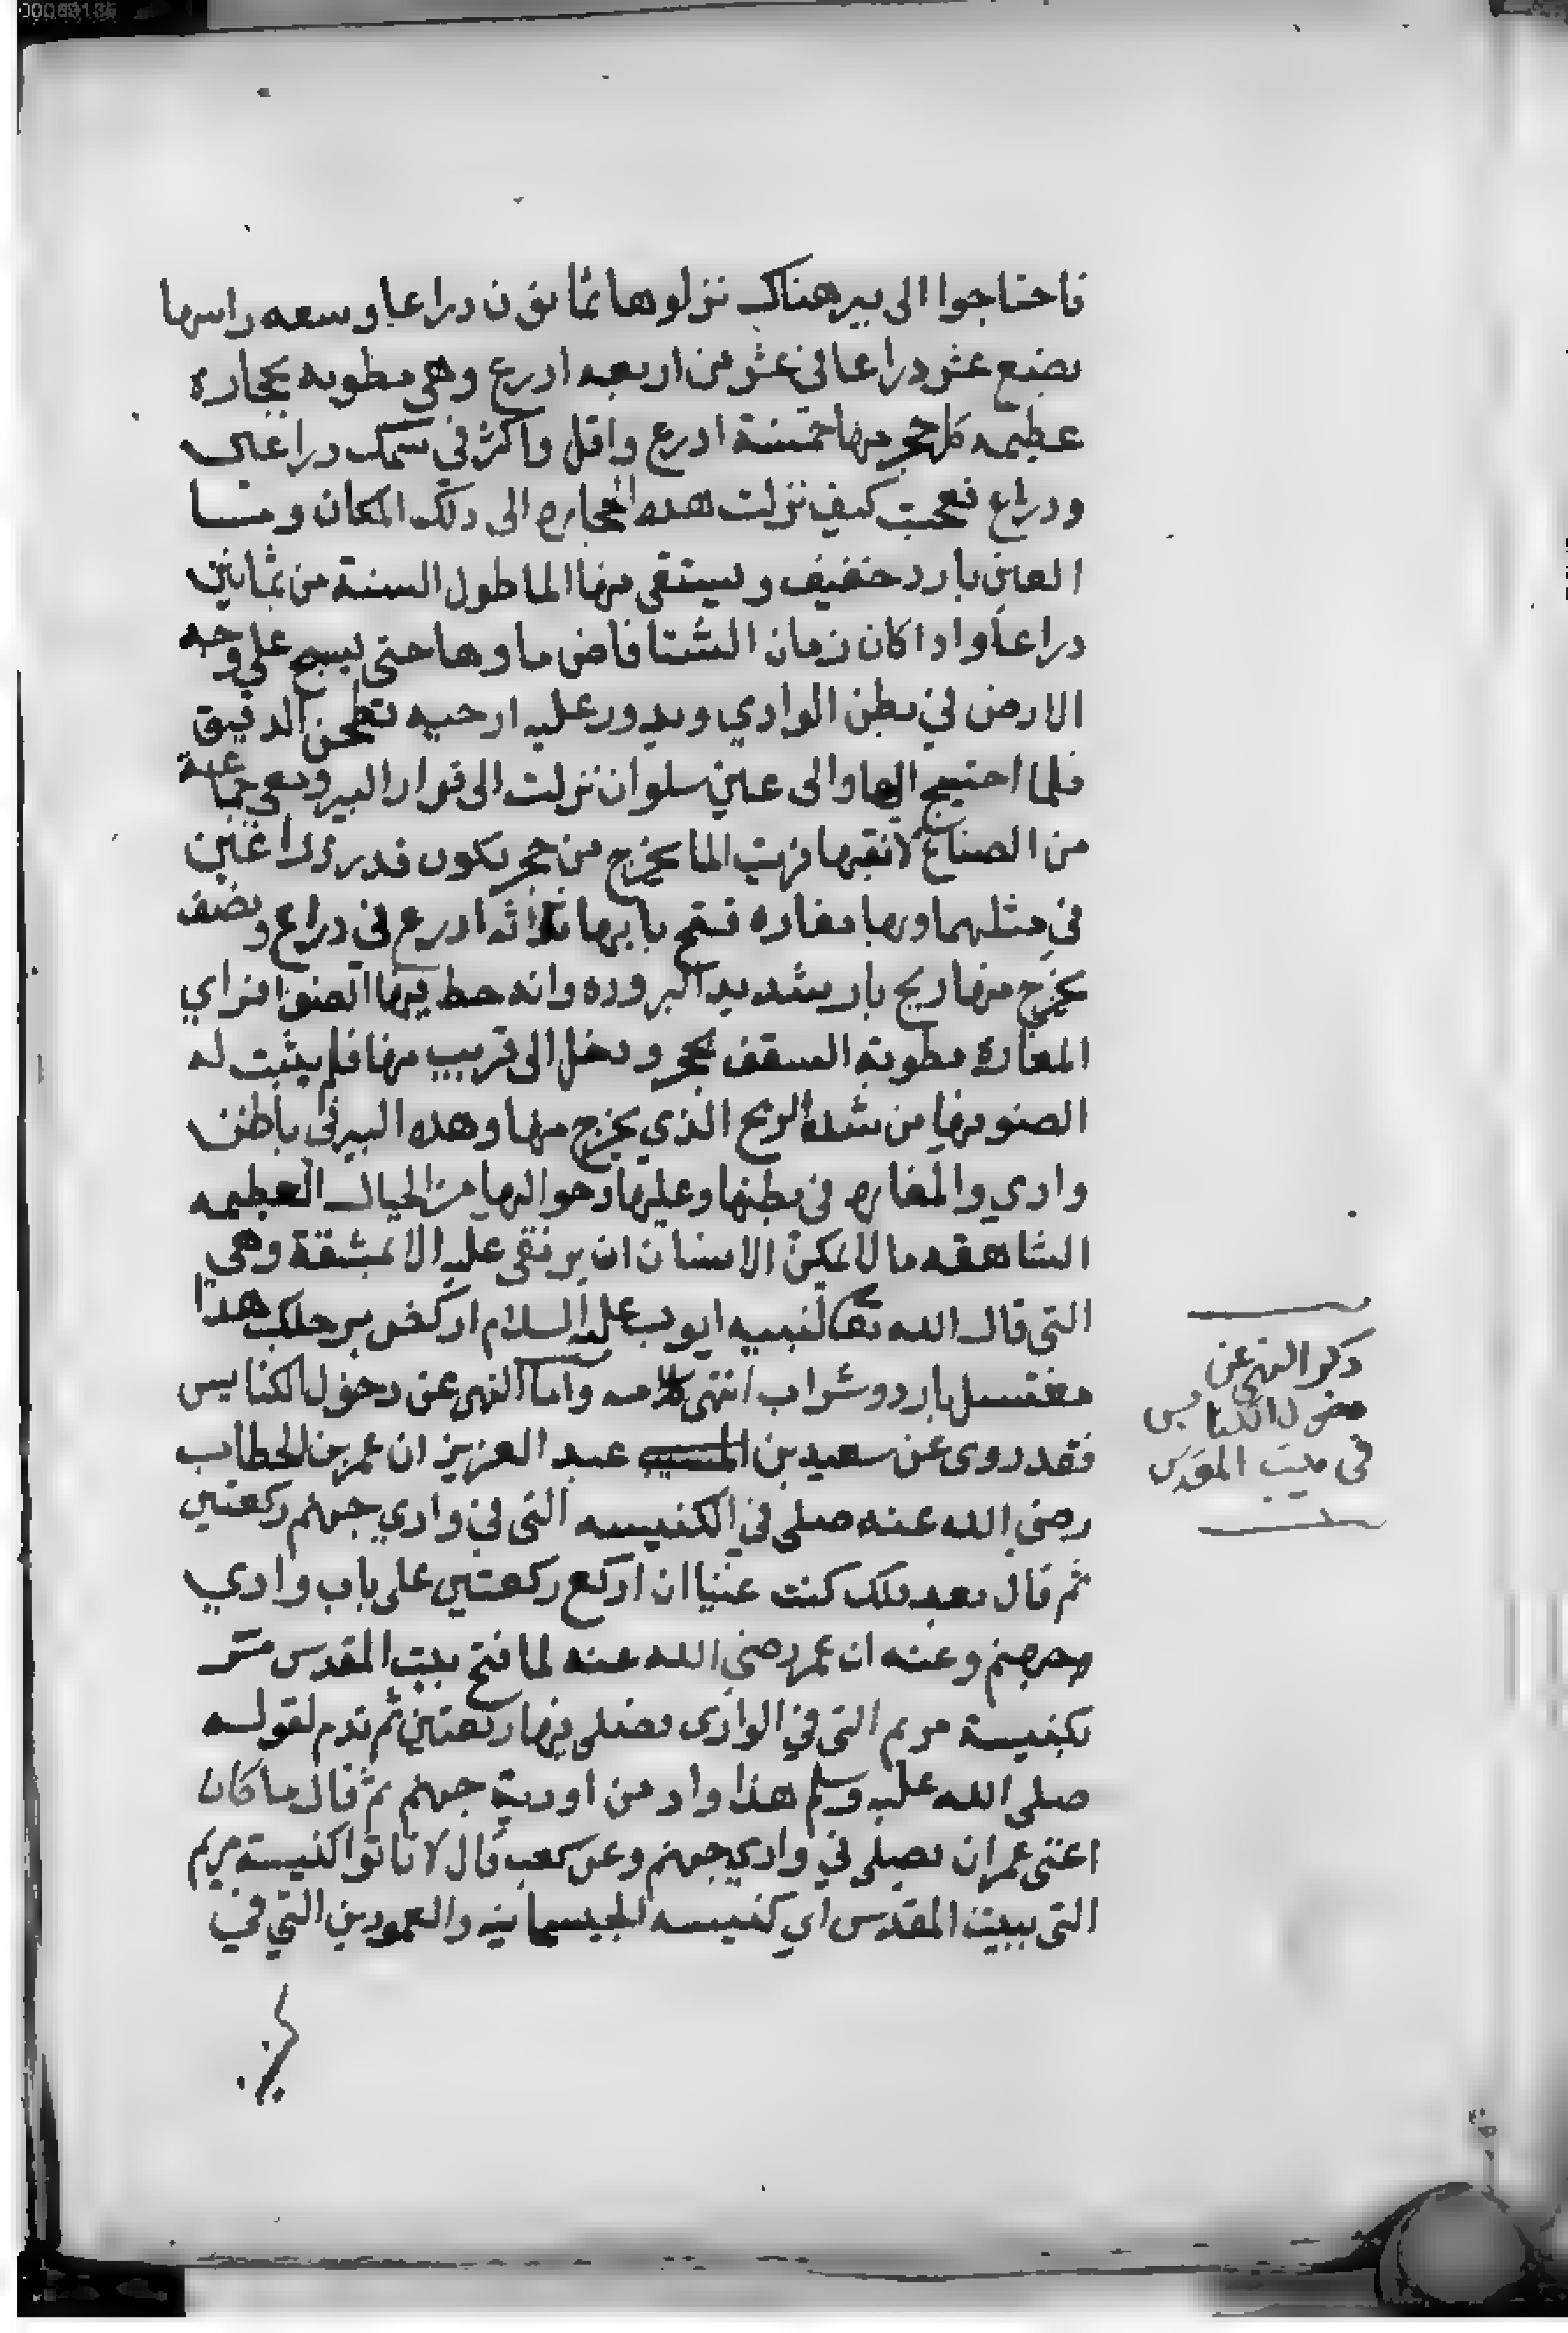 فاحتاجوا الى بير هناك نزلوها ثمانون دراعا وسعه راسها
بضع عشر دراعا في عشر من اربعه ادرع وهي مطويه بحجاره
عظيمه كل حجر منها خمسة ادرع واقل واكثر في سمك دراعين
ودراع فعجبت كيف نزلت هده الحجاره الى دلك المكان وما
العين بارد خفيف ويستقى منها الما طول السنة من ثمانين
دراعا وادا كان زمان الشتا فاض ماوها حتى يسيح على وجه
الارض في بطن الوادي ويدور عليه ارحيه تطحن الدقيق
فلما احتيج اليها والى عين سلوان نزلت الى قرار البير ومعي جماعة
من الصناع لانقبها فرايت الما يخرج من حجر يكون قدره دراعين
في مثلهما وبها مغاره فتح بابها ثلاثه ادرع في دراع ونصف
يخرج منها ريح بارد شديد البروده وانه حط فيها الضو فراي
المغارة مطوية السقف بحجر ودخل الى قريب منها فلم يثبت له
الضو فيها من شدة الريح الذي يخرج منها وهده البير في باطن
وادي والمغاره في بطنها وعليها وحواليها من الجبال العظيمه
الشاهقه ما لا يمكن الانسان ان يرتقى عليه الا بمشقة وهي
التى قال الله تعالى لنبيه ايوب عليه السلام اركض برجلك هدا
مغتسل بارد وشراب انتهى كلامه واما النهي عن دخول الكنايس
فقد روى عن سعيد بن المسيب عبد العزيز ان عمر بن الخطاب
رضي الله عنه صلى في الكنيسه التى في وادي جهنم ركعتين
ثم قال بعد دلك كنت غنيا ان اركع ركعتين على باب وادي
جهنم وعنه ان عمر رضي الله عنه لما فتح بيت المقدس مر
بكنيسة مريم التى في الوادى فصلى فيها ركعتين ثم ندم لقوله
صلى الله عليه وسلم هذا واد من اودية جهنم ثم قال ما كان
اغنى عمر ان يصلى في وادي جهنم وعن كعب قال لا تاتوا كنيسة مريم
التى ببيت المقدس اي كنيسه الجيسمانيه والعمودين التي في
دكر النهي عن
دخول الكنايس
فى بيت المقدس